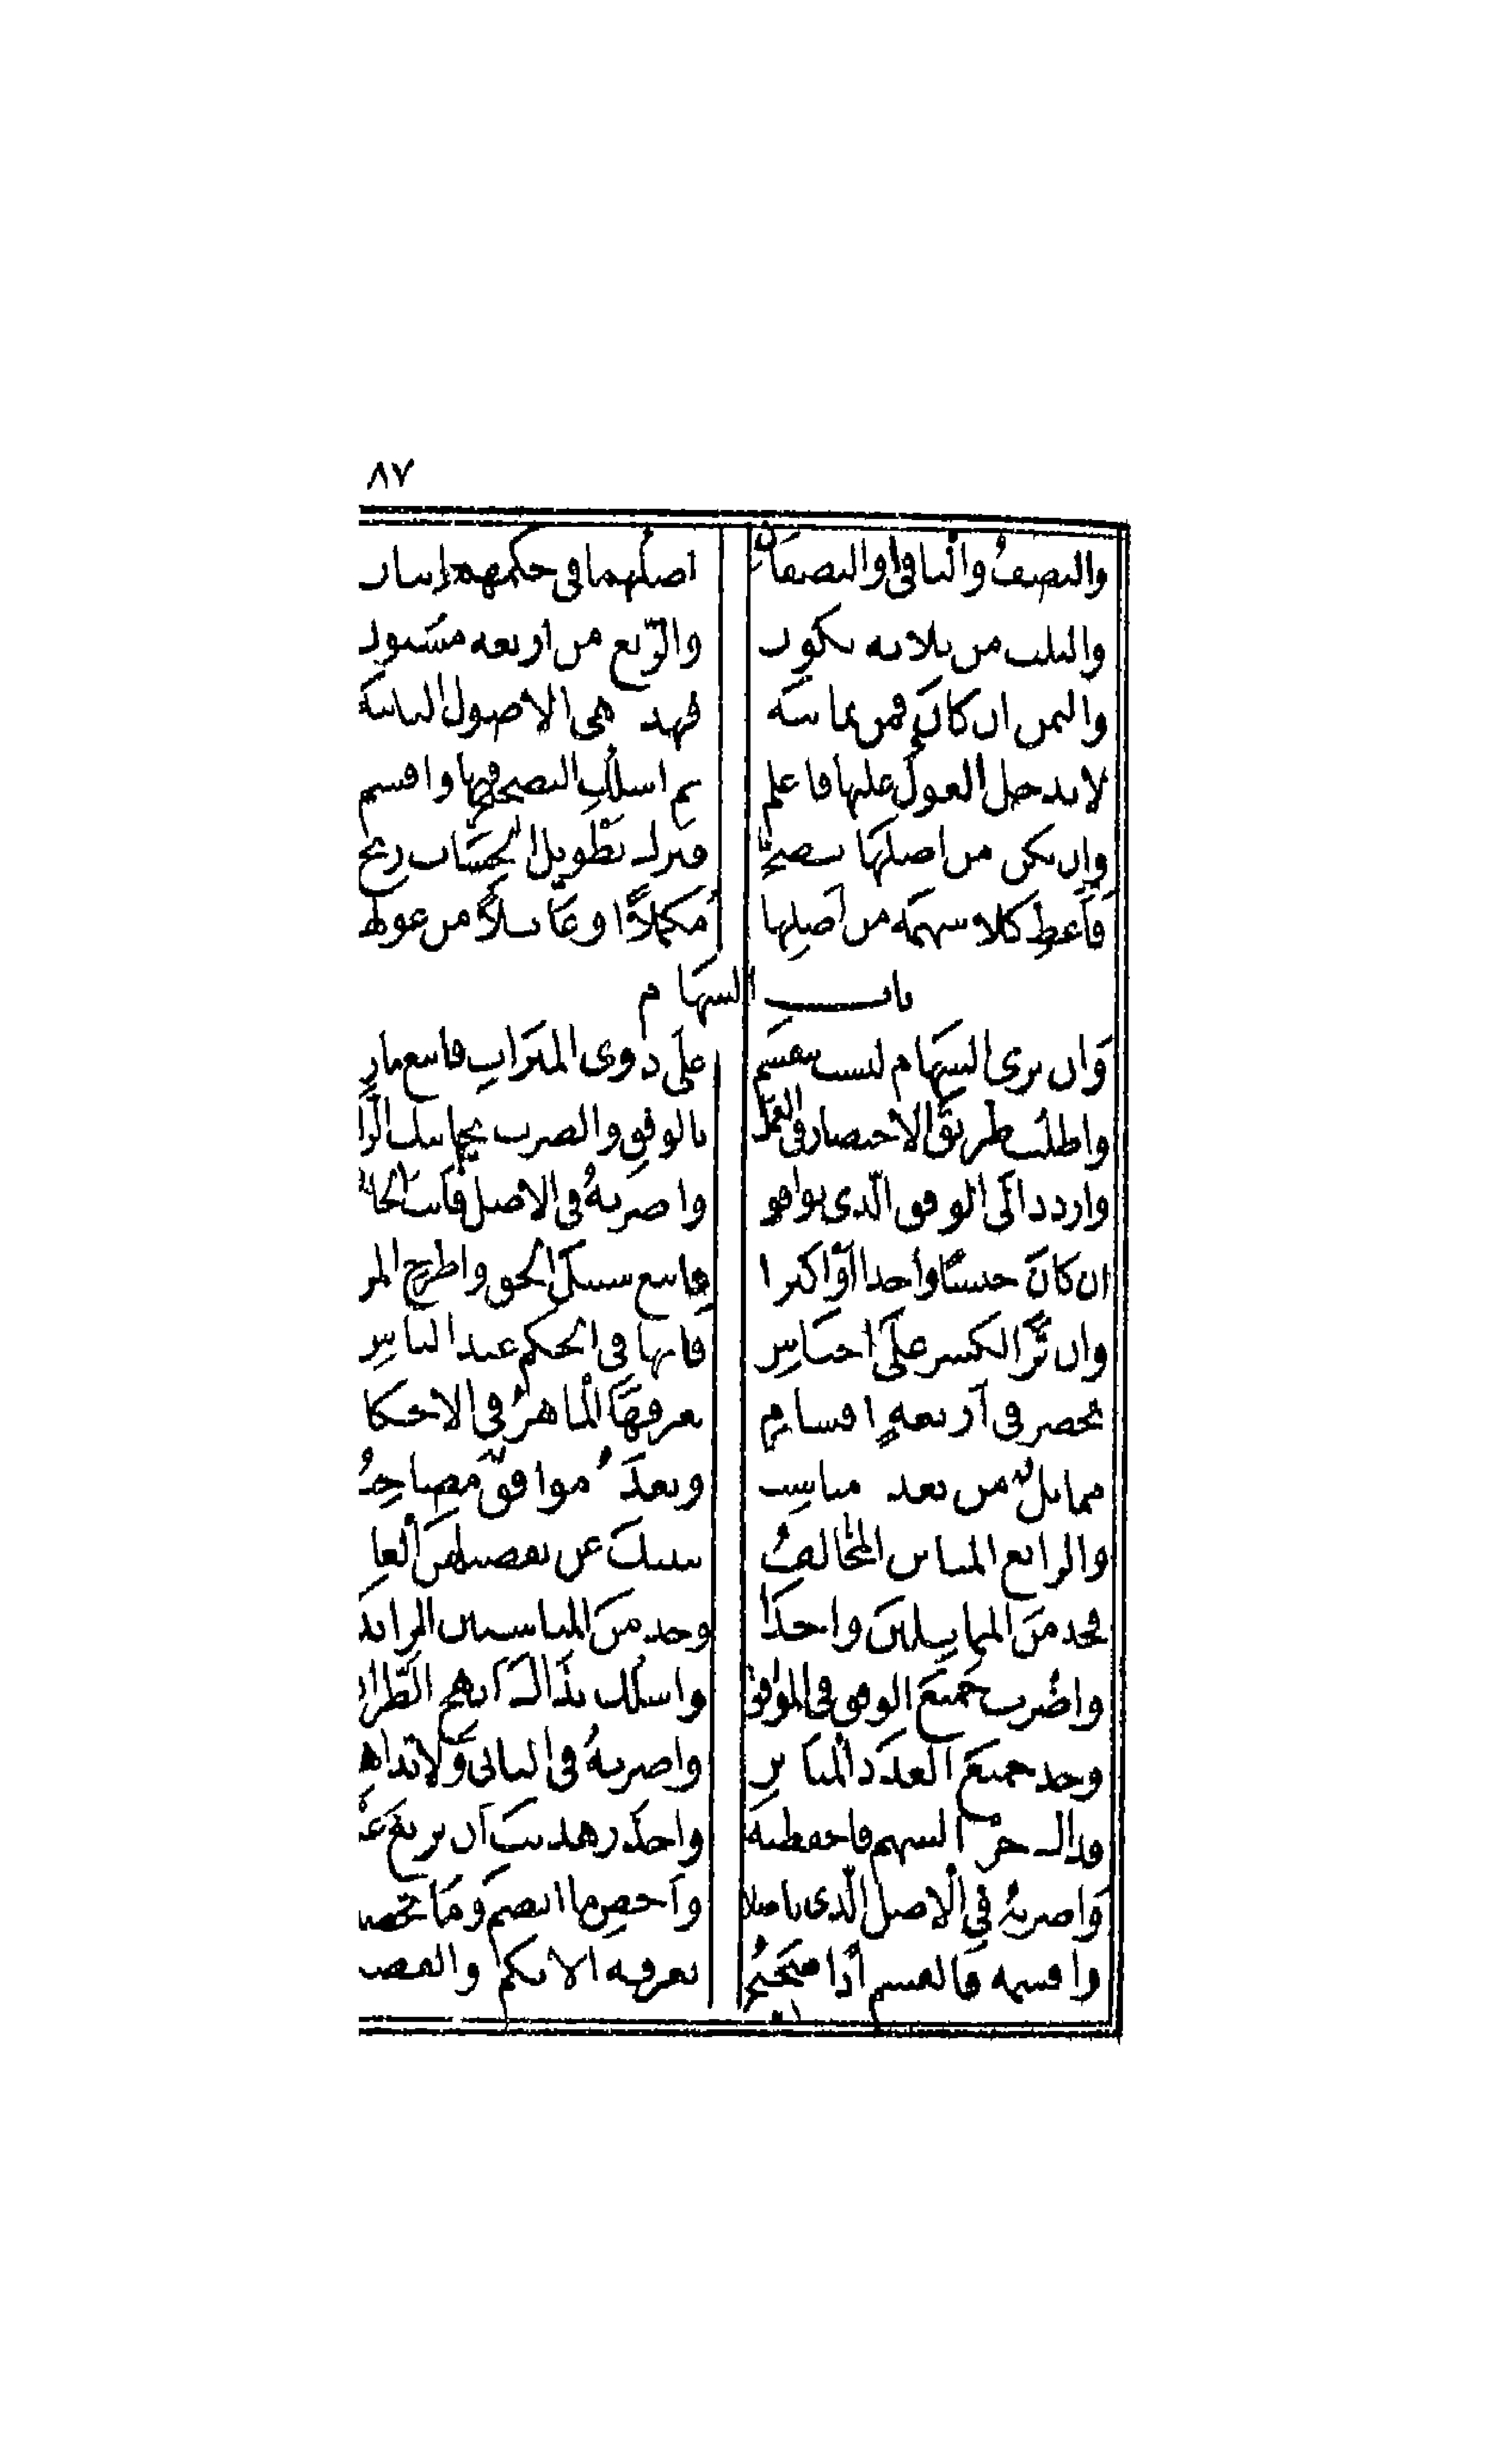 ٨٧
والنصف والباقي او النصفان اصلهما في حكمهم اثنان
والثلث من ثلاثه يكون والربع من اربعه مسنون
والثمن ان كان فمن ثمانيه فهذه هي الاصول الثانيه
لا يدخل العول عليها فاعلم ثم اسلك التصحيح فيها واقسم
وان تكن من اصلها تصح فترك تطويل الحساب ربح
فاعط كلا سهمه من اصلها مكملا او عائلا من عولها
باب السهام
وان ترى السهام ليست تنقسم على ذوي الميراث فاتبع ما رسم
واطلب طريق الاختصار في العمل بالوفق والضرب يجانبك الزلل
واردد الى الوفق الذي يوافق واضربه في الاصل فانت الحاذق
ان كان جنسا واحدا او اكثرا فاتبع سبيل الحق واطرح المرا
وان تر الكسر على اجناس فانها في الحكم عند الناس
تحصر في اربعة اقسام يعرفها الماهر في الاحكام
مماثل من بعده مناسب وبعده موافق مصاحب
والرابع المباين المخالف ينبيك عن تفصيلهن العارف
فخذ من المماثلين واحدا وخذ من المناسبين الزائدا
واضرب جميع الوفق في الموافق واسلك بذاك انهج الطرائق
وخذ جميع العدد المباين واضربه في الثاني ولا تداهن
فذاك جزء السهم فاحفظنه واحذر هديت ان تزيغ عنه
واضربه في الاصل الذي تاصلا واحص ما انضم وما تحصلا
واقسمه فالقسم اذا صحيح يعرفه الاعجم والفصيح